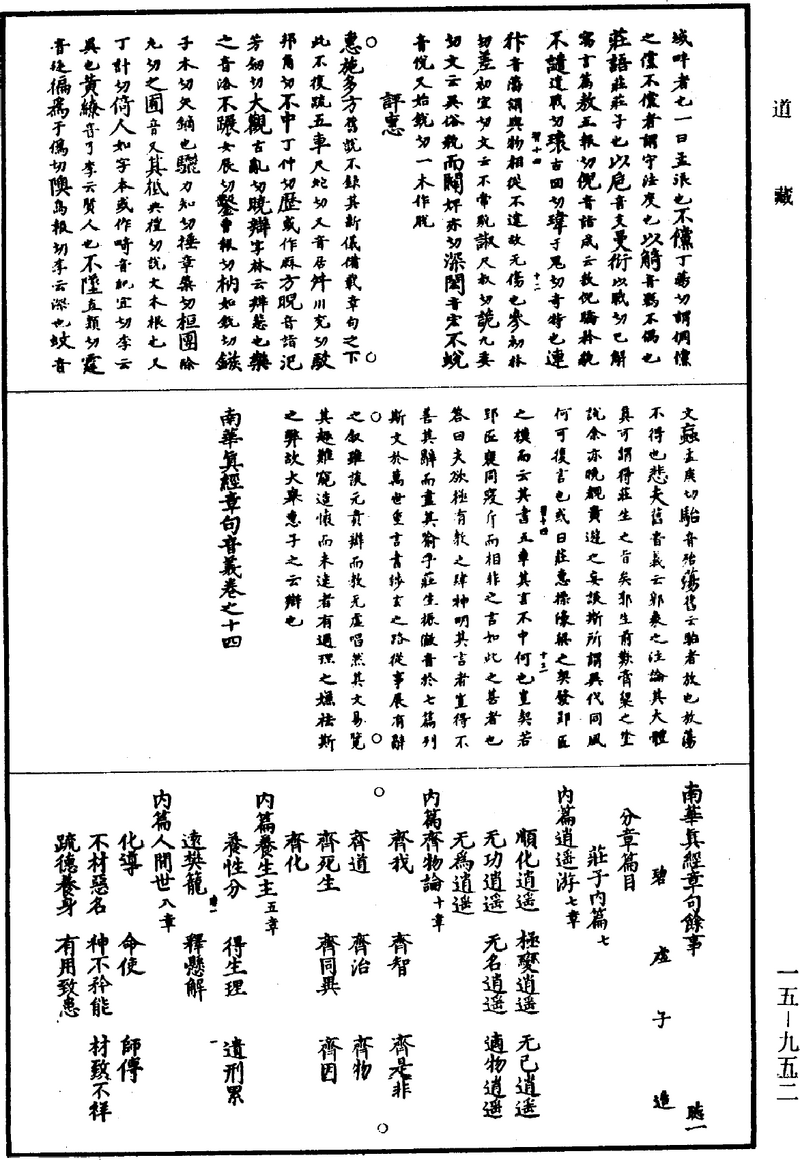 道藏
域畔者也一曰孟浪也不儻丁蕩切謂倜儻
之儻不儻者謂守法度也以觭音羈不偶也
莊語莊莊子也以巵音支曼衍以戰切已解
寓言篇敖五報切倪音詣成云敖倪驕矜貌
不譴遣戰切瓌古回切瑋于鬼切奇特也連
犿音蕃謂與物相從不違故无傷也參初林
切差初宜切文云不常貌諔尺叔切詭九委
切文云異俗貌而闢婢亦切深閎音宏不蛻
音悅又始銳切一本作脫
評惠
惠施多方舊說不錄其新儀備載章句之下
此不復疏五車尺蛇切又音居舛川兗切駁
邦角切不中丁仲切歷或作厤方睨音詣氾
芳劒切大觀古亂切曉辯字林云辯慧也樂
之音洛不蹍女展切鑿曹報切枘如銳切鏃
子木切矢鏑也驪力知切捶章橤切桓團除
九切之囿音又其柢典禮切說文木根也又
丁計切倚人如字本或作畸音紀宜切李云
異也黃繚音了李云賢人也不墜直類切霆
音廷徧爲于僞切隩烏報切李云深也蚊音
文蝱孟庚切駘音殆蕩舊云駘者放也放蕩
不得也悲夫舊音義云郭象之注論其大體
真可謂得莊生之旨矣郭生前歎膏粱之塗
說余亦晚覩貴遊之妄談斯所謂異代同風
何可復言也或曰莊惠標濠梁之契發郢匠
之模而云其書五車其言不中何也豈契若
郢匠褒同寢斤而相非之言如此之甚者也
答曰夫欲極有教之肆神明其言者豈得不
善其辭而盡其喻乎莊生振徽音於七篇列
斯文於萬世重言盡涉玄之路從事展有辭
之敘雖談无貴辯而教无虛唱然其文易覽
其趣難窺造懷而未達者有過理之嫌祛斯
之弊故大舉惠子之云辯也
南華真經章句音義卷之十四
南華真經章句餘事
碧虛子造
分章篇目
莊子內篇七
內篇逍遙游七章
順化逍遙 極變逍遙 无己逍遙
无功逍遙 无名逍遙 適物逍遙
无爲逍遙
內篇齊物論十章
齊我 齊智 齊是非
齊道 齊治 齊物
齊死生 齊同異 齊因
齊化
內篇養生主五章
養性分 得生理 遺刑累
遠樊籠 釋懸解
內篇人間世八章
化導 命使 師傅
不材惡名 神不矜能 材致不祥
疏德養身 有用致患
一五-九五二